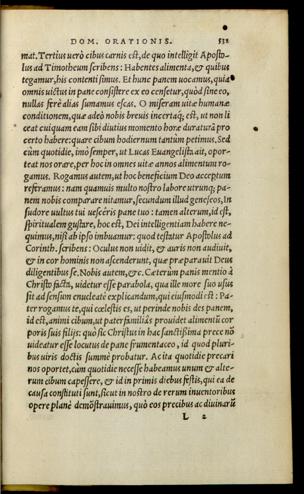 DOM. ORATIONIS. 531
mat. Tertius uerò cibus carnis est, de quo intelligit Aposto-
lus ad Timotheum scribens: Habentes alimenta, & quibus
tegamur, his contenti simus. Et hunc panem uocamus, quia
omnis uictus in pane consistere ex eo censetur, quòd sine eo,
nullas ferè alias sumamus escas. O miseram uitæ humanæ
conditionem, quæ adeò nobis breuis incertaq́; est, ut non li
ceat cuiquam eam sibi diutius momento horæ duraturā pro
certo habere: quare cibum hodiernum tantùm petimus. Sed
cùm quotidie, imò semper, ut Lucas Euangelista ait, opor-
teat nos orare, per hoc in omnes uitæ annos alimentum ro-
gamus. Rogamus autem, ut hoc beneficium Deo acceptum
referamus: nam quamuis multo nostro labore utrunq; pa-
nem nobis comparare nitamur, secundum illud geneseos, In
sudore uultus tui uescêris pane tuo: tamen alterum, id est,
spiritualem gustare, hoc est, Dei intelligentiam habere ne-
quimus, nisi ab ipso imbuamur: quod testatur Apostolus ad
Corinth. scribens: Oculus non uidit, & auris non audiuit,
& in cor hominis non ascenderunt, quæ præparauit Deus
diligentibus se. Nobis autem, &c. Cæterùm panis mentio à
Christo facta, uidetur esse parabola, qua ille more suo usus
sit ad sensum enucleatè explicandum, qui eiusmodi est: Pa-
ter rogamus te, qui cœlestis es, ut perinde nobis des panem,
id est, animi cibum, ut pater familiâs prouidet alimentū cor
poris suis filijs: quò sic Christus in hac sanctissima prece nō
uideatur esse locutus de pane frumentaceo, id quod pluri-
bus uiris doctis summè probatur. Ac ita quotidie precari
nos oportet, cùm quotidie necesse habeamus unum & alte-
rum cibum capessere, & id in primis diebus festis, qui ea de
causa constituti sunt, sicut in nostro de rerum inuentoribus
opere planè demōstrauimus, quò eos precibus ac diuinarū
L 2